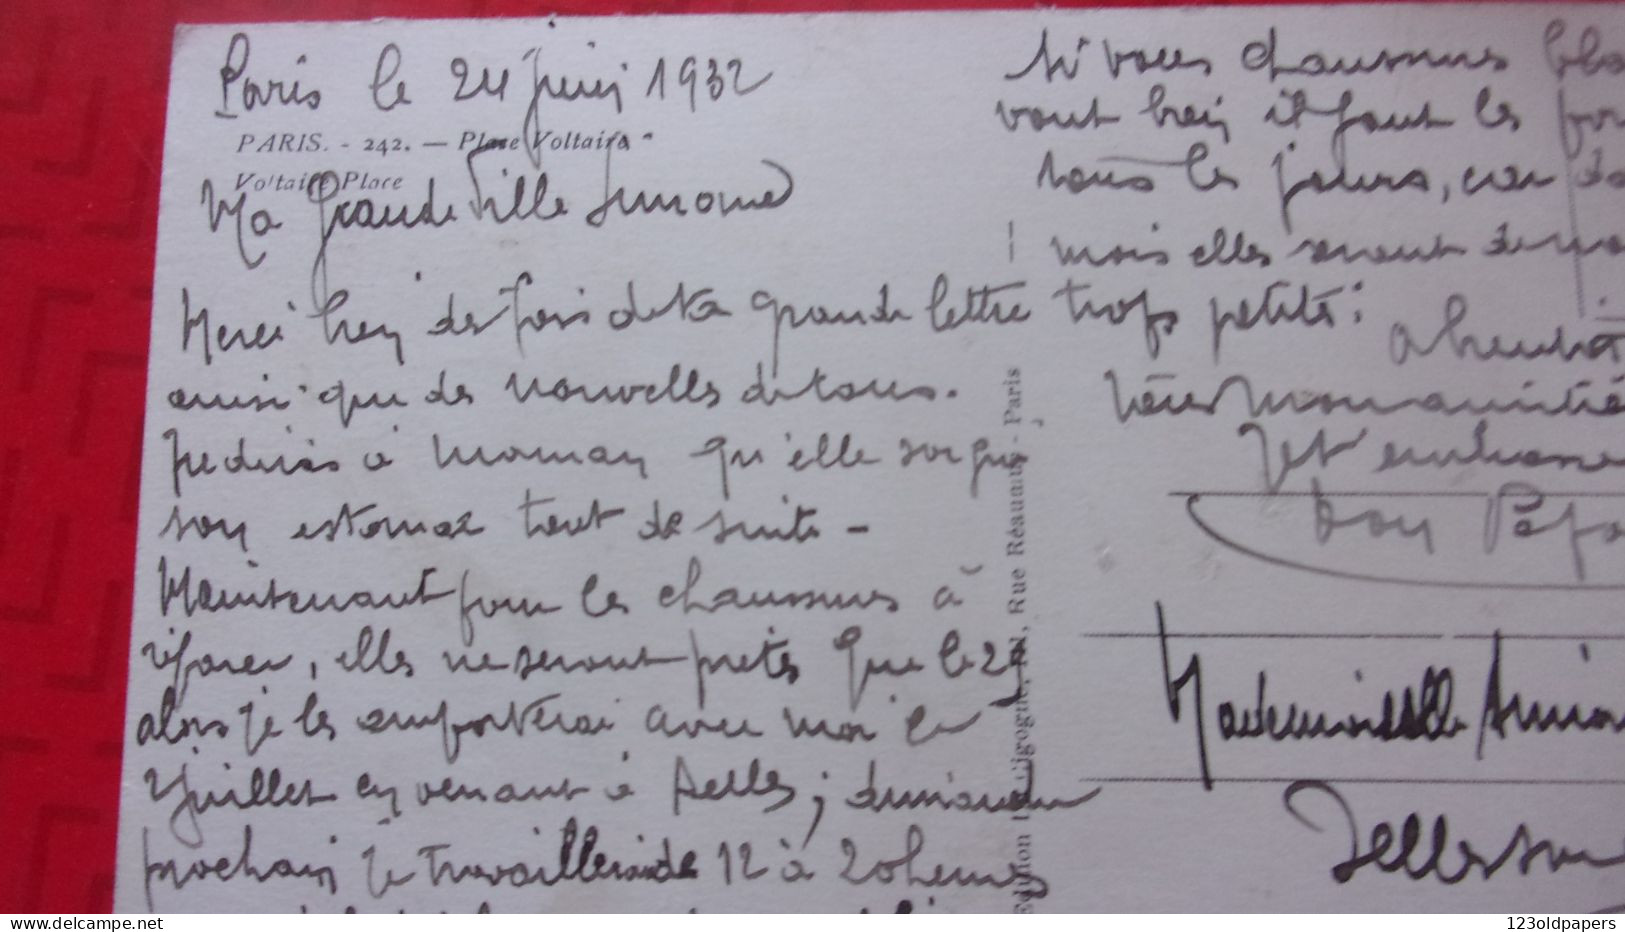 Paris le 24 Juin 1932
PARIS. - 242. — Place Voltaire
Voltaire Place
Ma Grande Fille Simone
Merci bien des fois de ta grande lettre
ainsi que des nouvelles de tous.
tu diras à Maman qu'elle soigne
son estomac tout de suite -
Maintenant pour les chaussures à
réparer, elles ne seront prêtes que le 2
alors je les emporterai avec moi le
2 Juillet en venant à Selles; dimanche
prochain je travaillerai de 12 à 20 heures
si vos chaussures
vont bien il faut les
tous les jours, car
mois elles seront
trop petites.
a bientôt
Je t'embrasse
ton Papa
Mademoiselle
Selles sur
Rue Réaumur - Paris
123oldpapers
delcampe.net